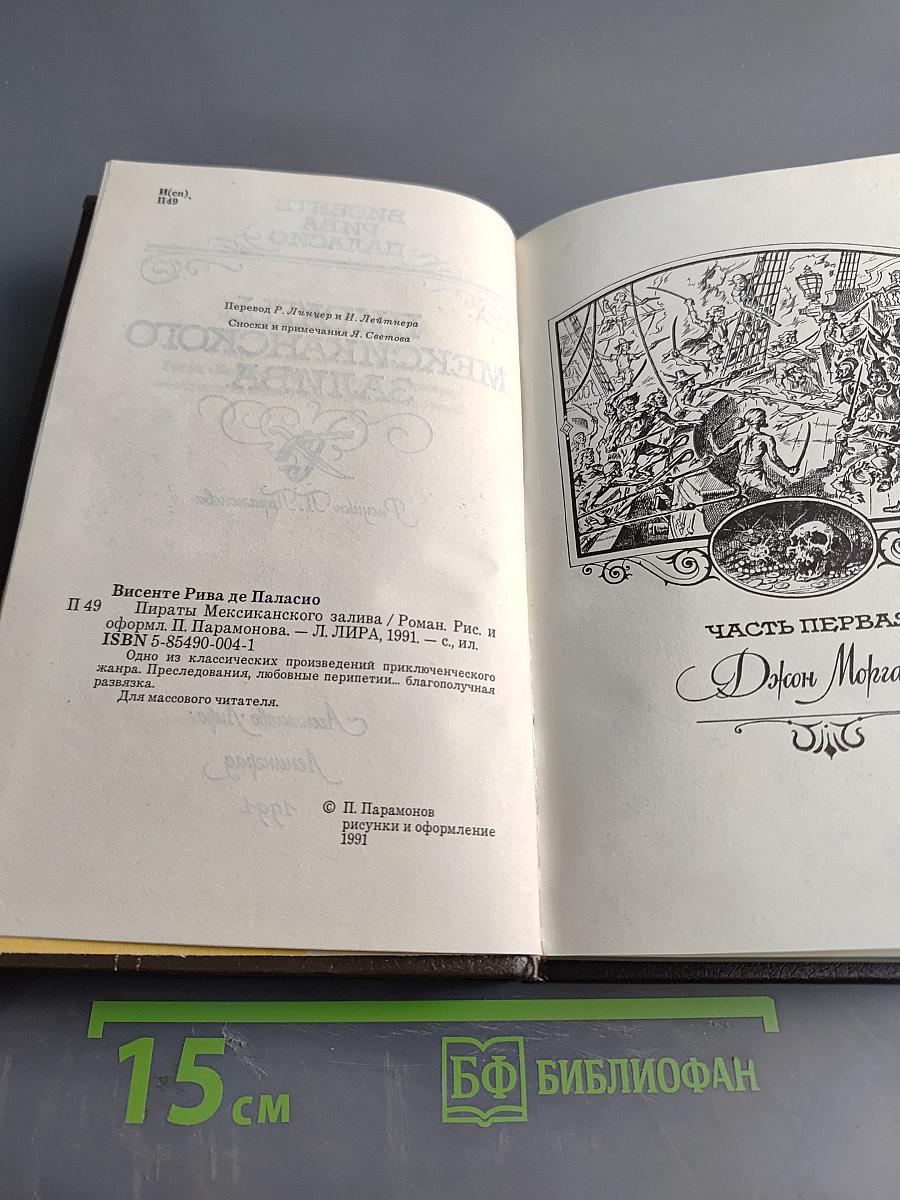 И(сп).
П49
Перевод Р. Линцер и И. Лейтнера
Сноски и примечания Я. Светова
Висенте Рива де Паласио
П 49 Пираты Мексиканского залива / Роман. Рис. и
оформл. П. Парамонова. — Л. ЛИРА, 1991. — с., ил.
ISBN 5-85490-004-1
Одно из классических произведений приключенческого
жанра. Преследования, любовные перипетии... благополучная
развязка.
Для массового читателя.
© П. Парамонов
рисунки и оформление
1991
ЧАСТЬ ПЕРВАЯ
Джон Морга
15 см
БФ БИБЛИОФАН